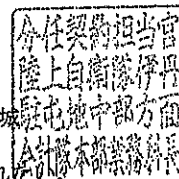 今任契約担当官
陸上自衛隊伊丹
駐屯地中部方面
会計隊本部契約科長
城